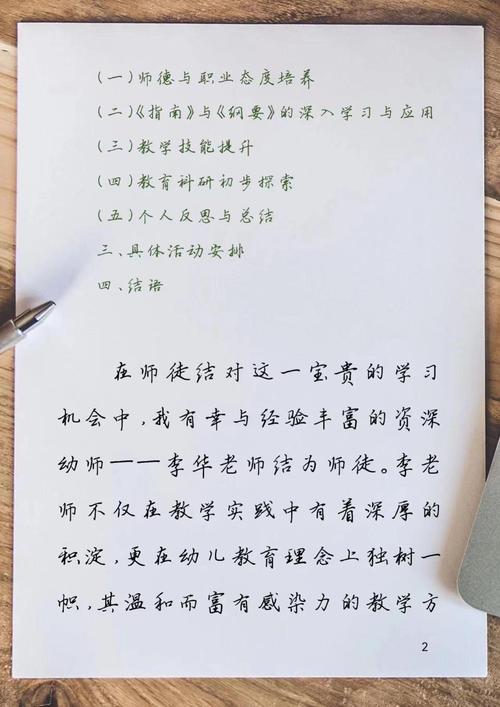 (一)师德与职业态度培养
(二)《指南》与《纲要》的深入学习与应用
(三)教学技能提升
(四)教育科研初步探索
(五)个人反思与总结
三、具体活动安排
四、结语
在师徒结对这一宝贵的学习
机会中,我有幸与经验丰富的资深
幼师——李华老师结为师徒。李老
师不仅在教学实践中有着深厚的
积淀,更在幼儿教育理念上独树一
帜,其温和而富有感染力的教学方
2